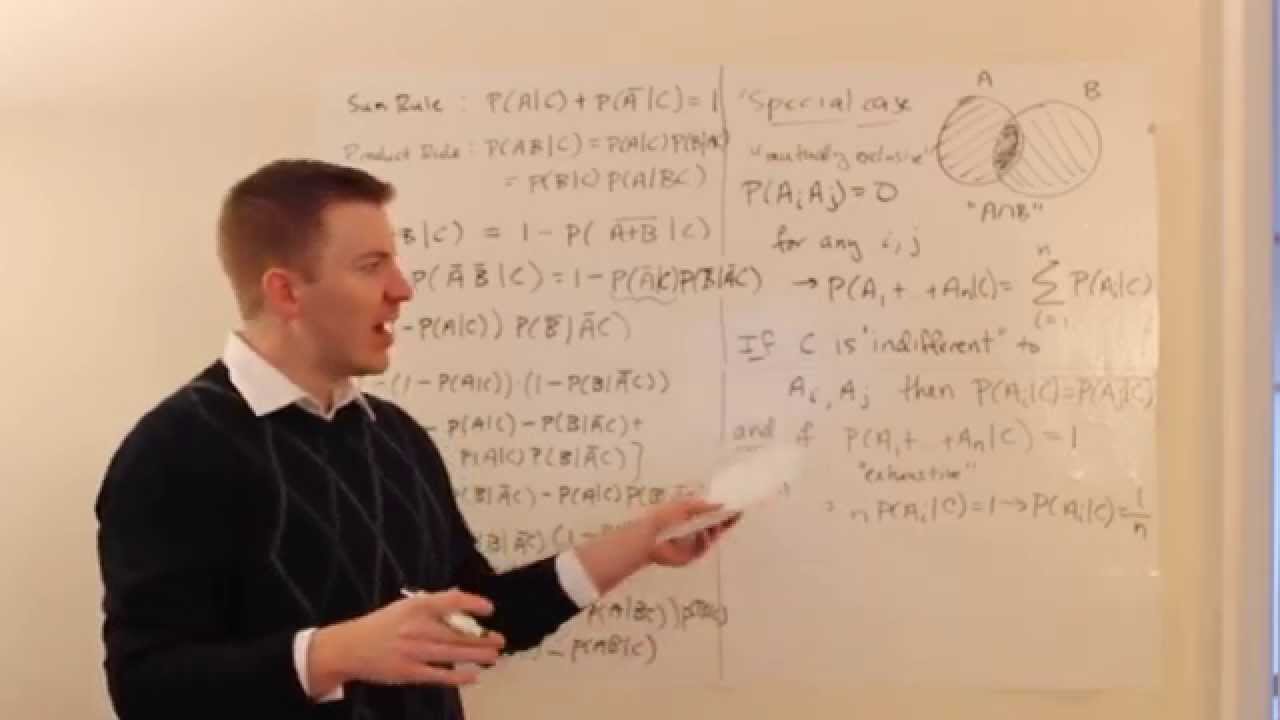 Sum Rule : P(A|C) + P(Ā|C) = 1
Product Rule : P(AB|C) = P(A|C) P(B|AC)
= P(B|C) P(A|BC)
+B|C) = 1 - P( \overline{A+B} |C)
P(Ā B̄ |C) = 1 - P(Ā|C) P(B̄|ĀC)
- P(A|C)) P(B̄|ĀC)
-(1-P(A|C))·(1-P(B|ĀC))
- P(A|C) - P(B|ĀC) +
P(A|C) P(B|ĀC)]
(B|ĀC) - P(A|C) P(B
B|ĀC) (1-
P(A|BC))
- P(AB|C)
Special case
"mutually exclusive"
P(AᵢAⱼ) = 0
for any i, j
→ P(A₁ + .. + Aₙ|C) = \sum_{i=1}^{n} P(Aᵢ|C)
If C is "indifferent" to
Aᵢ, Aⱼ then P(Aᵢ|C) = P(Aⱼ|C)
and if P(A₁ + .. + Aₙ|C) = 1
"exhaustive"
n P(Aᵢ|C) = 1 → P(Aᵢ|C) = \frac{1}{n}
A
B
"A∩B"